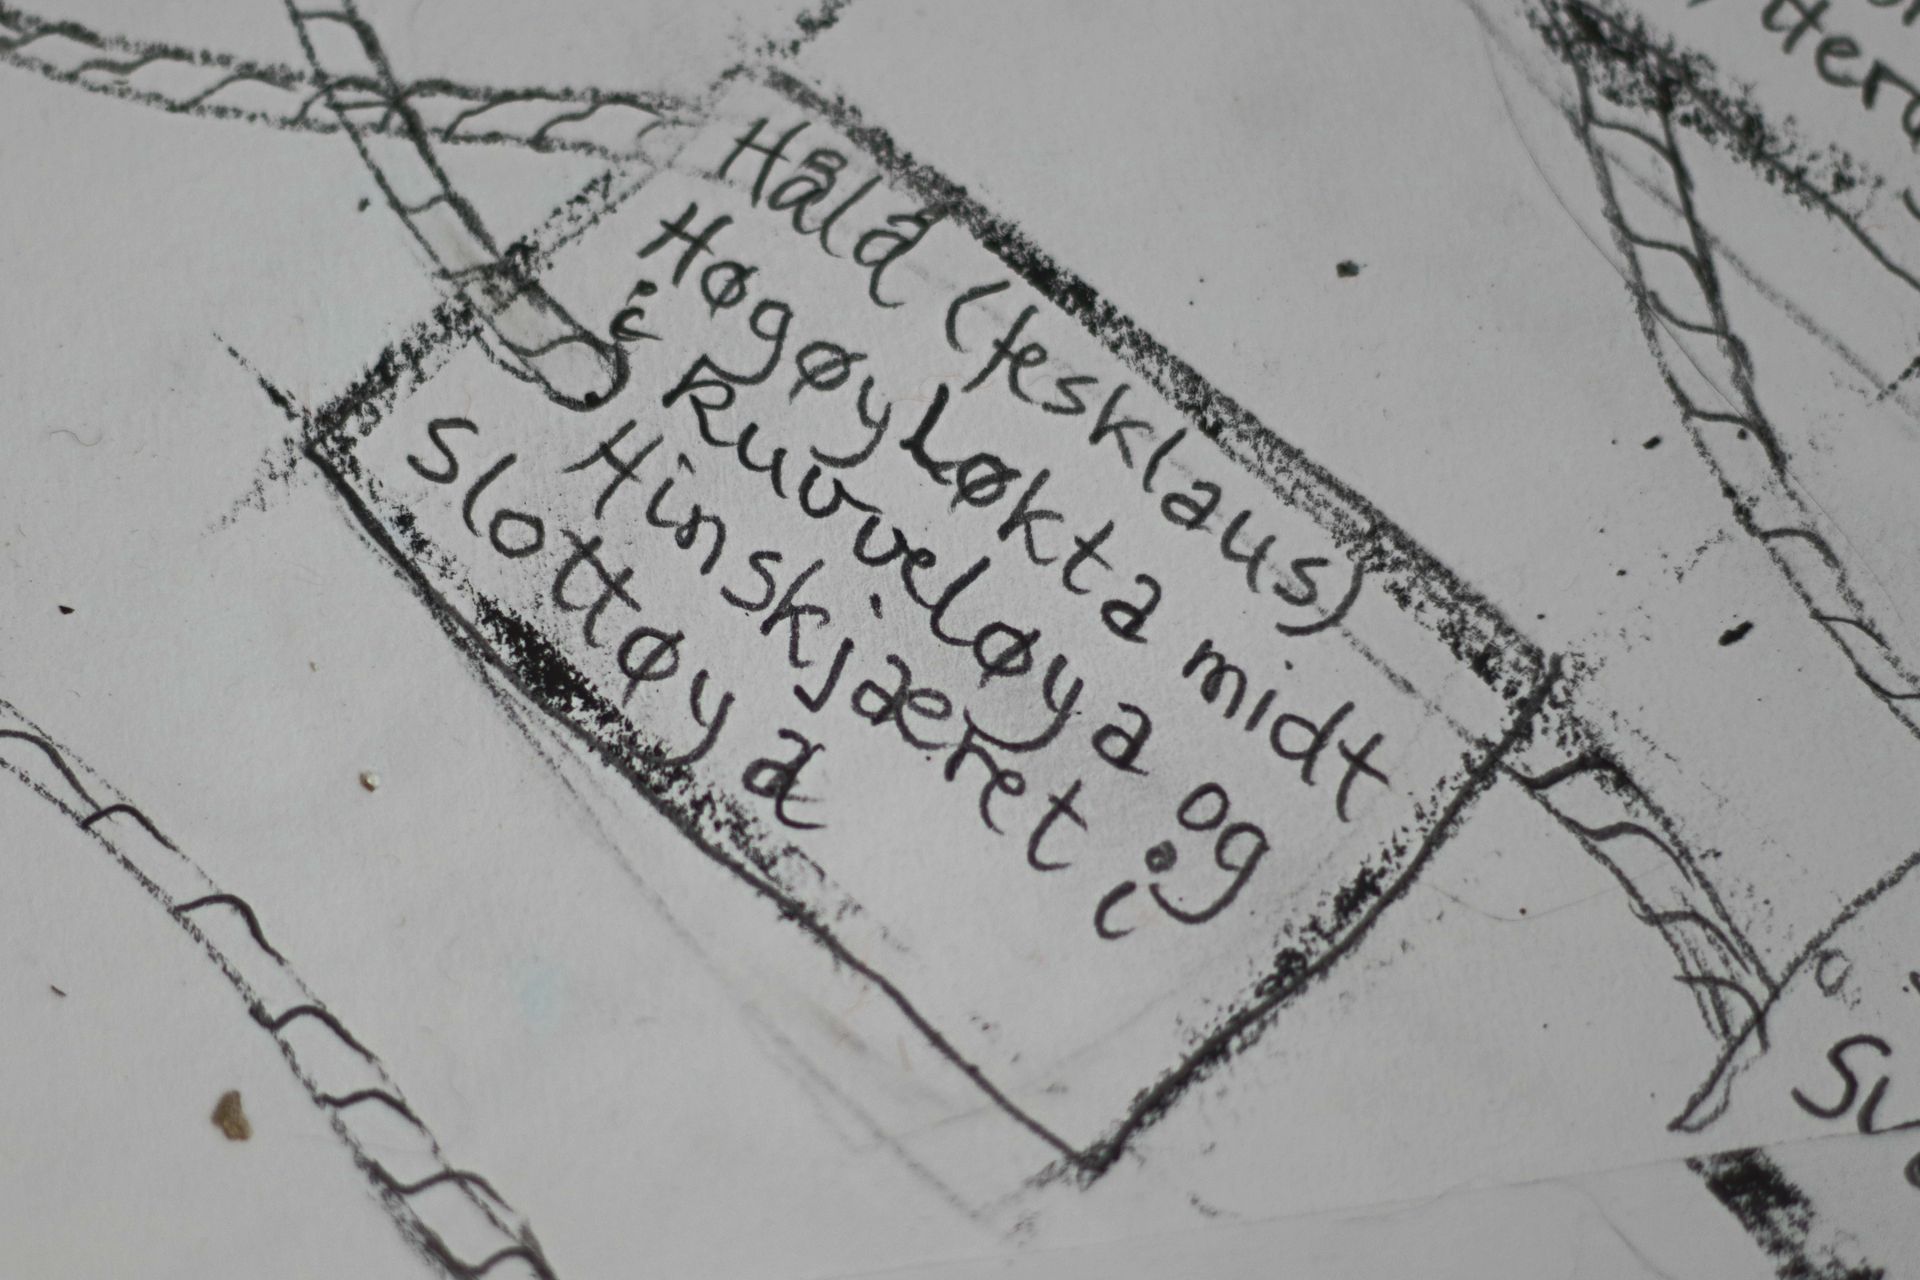 Hålå (fesklaus)
Høgøyløkta midt
i Ruvveløya og
Hinskjæret i
Slottøyå